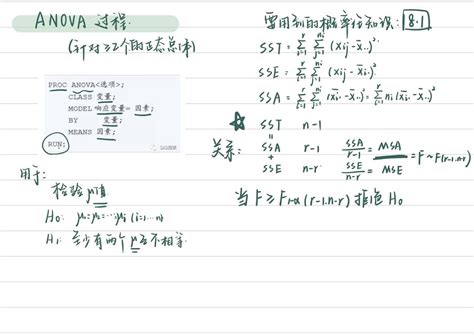 ANOVA 过程.
(针对≥2个的正态总体)
PROC ANOVA<选项>;
CLASS 变量;
MODEL 响应变量= 因素;
BY 变量;
MEANS 因素;
RUN;
用于:
检验μ值
H₀: μ₁=μ₂=…μᵢ (i=1…n)
H₁: 至少有两个μ不相等.
要用到的概率论知识: 8.1
SST = Σᵢ₌₁ʳ Σⱼ₌₁ⁿⁱ (xij - x̄..)²
SSE = Σᵢ₌₁ʳ Σⱼ₌₁ⁿⁱ (xij - x̄i.)²
SSA = Σᵢ₌₁ʳ Σⱼ₌₁ⁿⁱ (x̄i. - x̄..)² = Σᵢ₌₁ʳ ni (x̄i. - x̄..)²
☆ SST n-1
关系: = SSA r-1 SSA/r-1 = MSA
+ SSE n-r SSE/n-r = MSE = F ~ F(r-1.n-r)
当 F ≥ F₁₋α (r-1.n-r) 拒绝 H₀